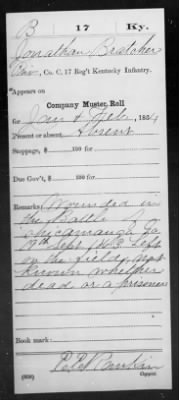 B 17 Ky.
Jonathan Bratcher
Co. C, 17 Reg't Kentucky Infantry.
Appears on
Company Muster Roll
for Jan & Feb, 1864
Present or absent, Absent
Stoppage, $ 100 for
Due Gov't, $ 100 for
Remarks: Wounded in
the Battle of
Chicamauga Ga
19th Sept 1863 left
on the field, not
known whether
dead or a prisoner
Book mark:
Copyist.